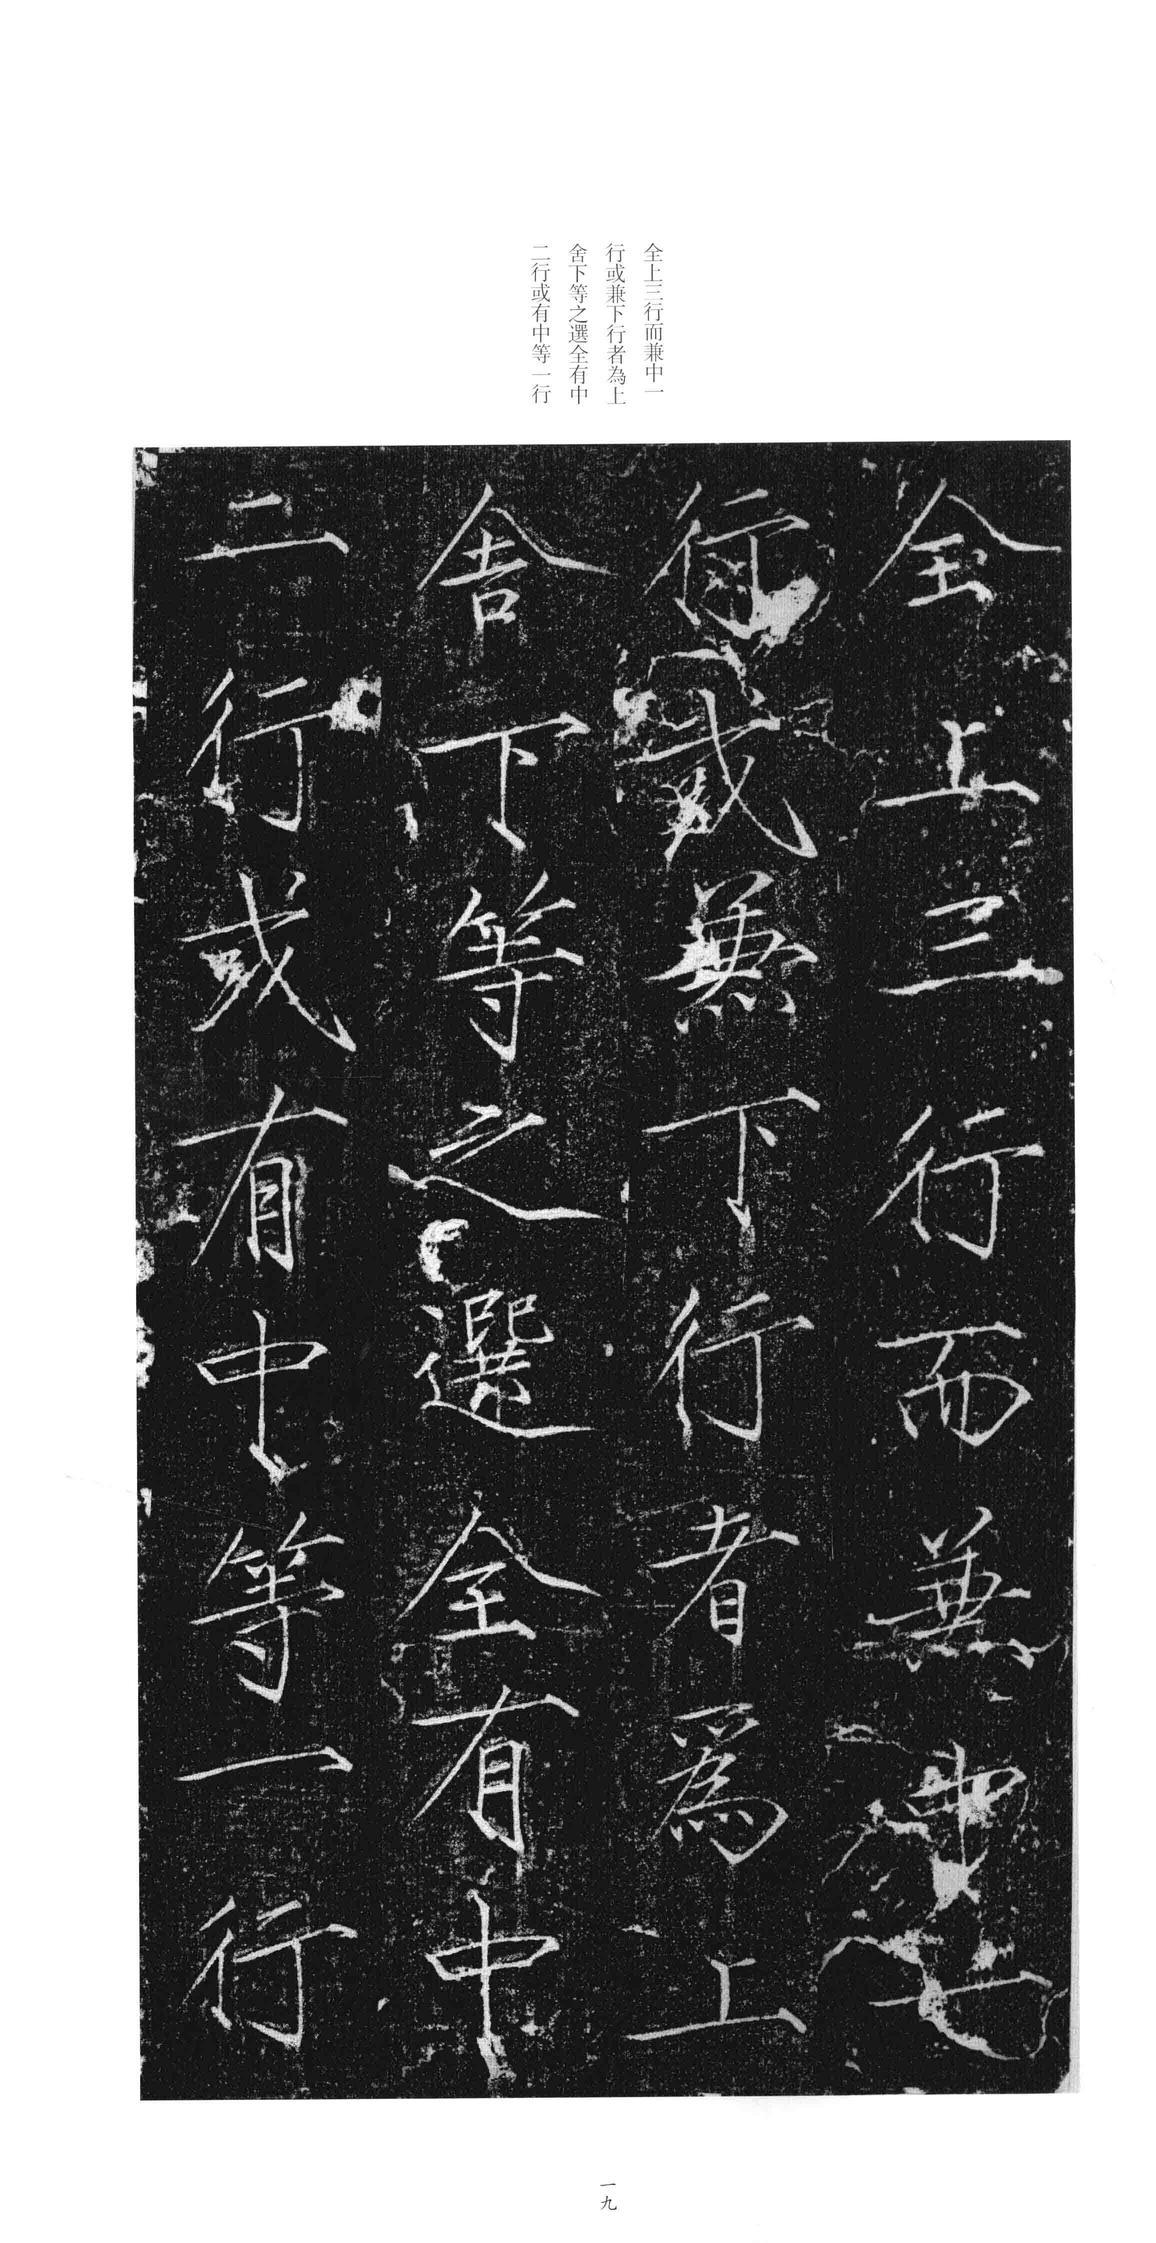 全上三行而兼中一
行或兼下行者為上
舍下等之選全有中
二行或有中等一行
全上三行而兼中一
行或兼下行者為上
舍下等之選全有中
二行或有中等一行
一九